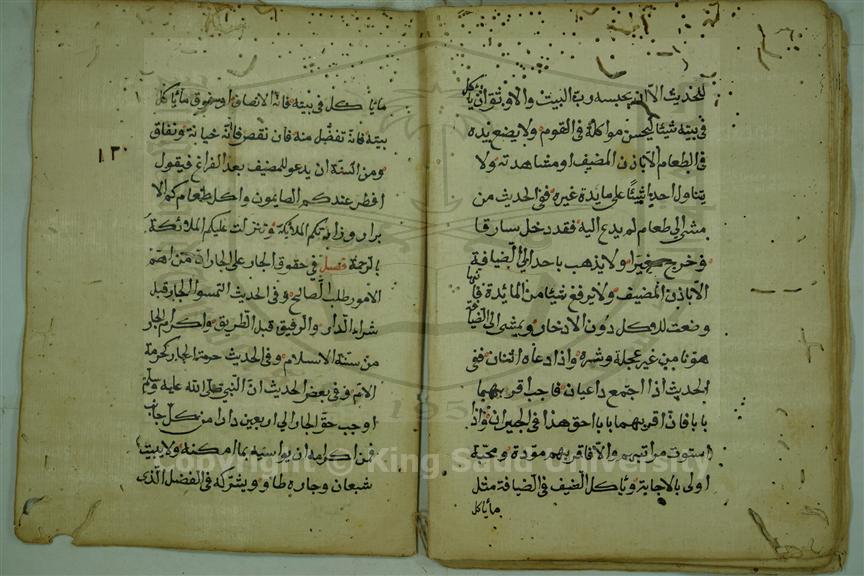 للحديث الا ان يحبسه رب البيت والاوثق ان ياكل
في بيته شيئا ليحسن مواكلة في القوم ولا يضع يده
في الطعام الا باذن المضيف او مشاهدته ولا
يتناول احدا شيئا على مايدة غيره ففي الحديث من
مشى الى طعام لم يدع اليه فقد دخل سارقا
وخرج مغيرا ولا يذهب باحد الى الضيافة
الا باذن المضيف ولا يرفع شيئا من المائدة فانها
وضعت للاكل دون الادخار ويمشى الى الضيافة
هونا من غير عجلة وشره واذا دعاه اثنان ففى
الحديث اذا اجتمع داعيان فاجب اقربهما
بابا فان اقربهما بابا احق هذا في الجيران واذا
استوت مراتبهم والا فاقربهم مودة ومحبة
اولى بالاجابة وياكل الضيف في الضيافة مثل
ماياكل
ماياكل في بيته فانه الانصاف او فوق ماياكل
بيته فانه تفضل منه فان نقص فانه خيانة ونفاق
ومن السنة ان يدعو للمضيف بعد الفراغ فيقول
افطر عندكم الصايمون واكل طعامكم الا
برار وزارتكم الملائكة وتنزلت عليكم الملائكة
بالرحمة فصل في حقوق الجار على الجار ان من اهم
الامور طلب الجار الصالح وفي الحديث التمسوا الجار قبل
شراء الدار والرفيق قبل الطريق واكرام الجار
من سنة الاسلام وفي الحديث حرمة الجار كحرمة
الام وفي بعض الحديث ان النبي صلى الله عليه وسلم
اوجب حق الجار الى اربعين دارا من كل جانب
فمن اكرامه ان يواسيه بما امكنه ولا يبيت
شبعان وجاره طاو ويشركه في الفضل الذى
١٣٠
Copyright © King Saud University